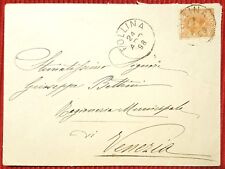 POLLINA
24
98
Stimatissimo Signor
Giuseppe Bettini
Ragioneria Municipale
di
Venezia